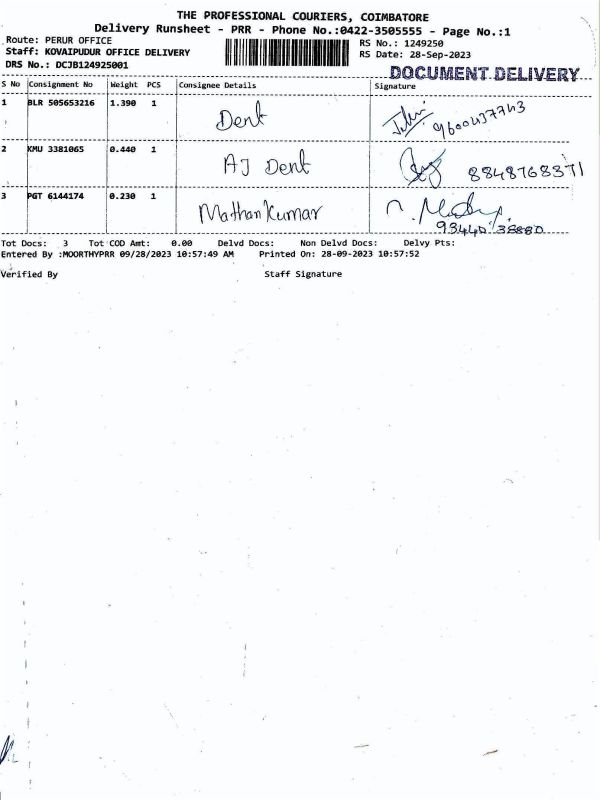 THE PROFESSIONAL COURIERS, COIMBATORE
Delivery Runsheet - PRR - Phone No.:0422-3505555 - Page No.:1
Route: PERUR OFFICE RS No.: 1249250
Staff: KOVAIPUDUR OFFICE DELIVERY RS Date: 28-Sep-2023
DRS No.: DCJB124925001 DOCUMENT DELIVERY
S No Consignment No Weight PCS Consignee Details Signature
1 BLR 505653216 1.390 1 Dent 9600437743
2 KMU 3381065 0.440 1 AJ Dent 8848768371
3 PGT 6144174 0.230 1 Mathan Kumar
93440 38880
Tot Docs: 3 Tot COD Amt: 0.00 Delvd Docs: Non Delvd Docs: Delvy Pts:
Entered By :MOORTHYPRR 09/28/2023 10:57:49 AM Printed On: 28-09-2023 10:57:52
Verified By Staff Signature